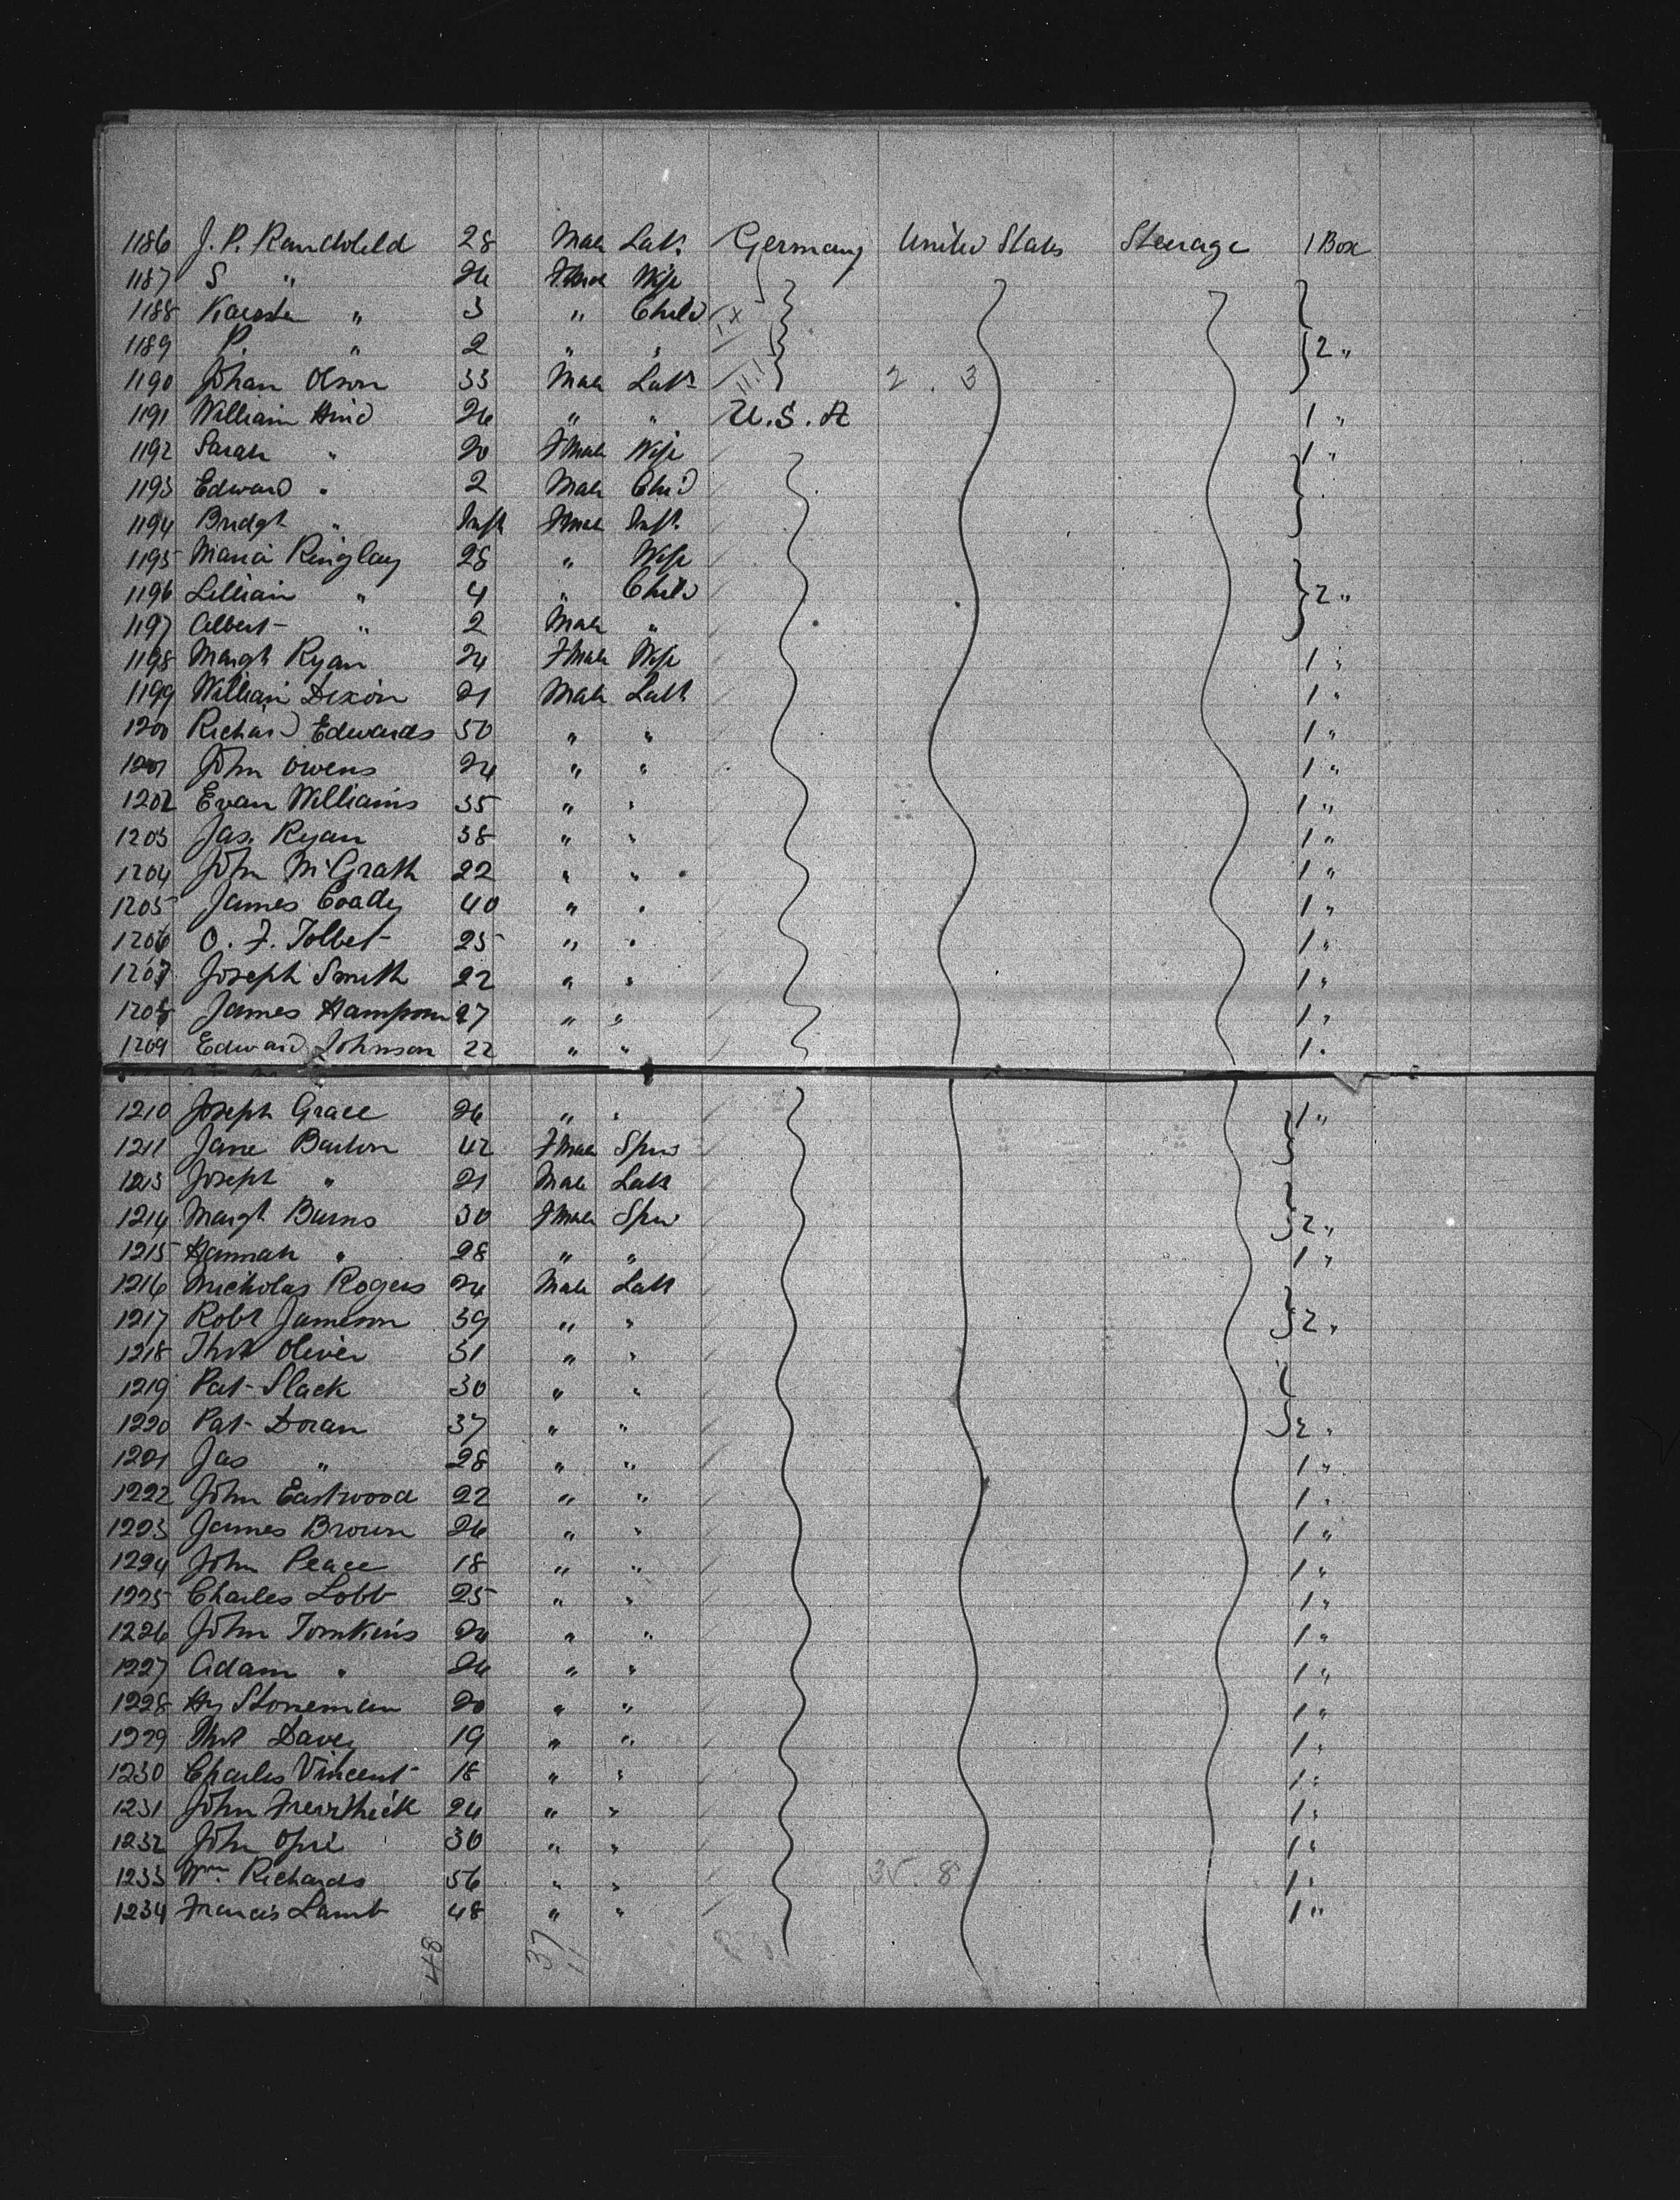 1186 J. P. Randchleld 28 Male Labr Germany United States Steerage 1 Box
1187 S " 26 Fmale Wife
1188 Karsten " 3 " Child
1189 P. " 2 " " 2 "
1190 Johan Olson 33 Male Labr 2 . 3
1191 William Hind 26 " " U.S.A 1 "
1192 Sarah " 20 Fmale Wife 1 "
1193 Edward " 2 Male Child
1194 Bridgt " Inft Fmale Inft
1195 Maria Ringlay 28 " Wife
1196 Lillian " 4 " Child 2 "
1197 Albert " 2 Male "
1198 Margt Ryan 24 Fmale Wife 1 "
1199 William Dixon 21 Male Labr 1 "
1200 Richard Edwards 50 " " 1 "
1201 John Owens 24 " " 1 "
1202 Evan Williams 35 " " 1 "
1203 Jas. Ryan 38 " " 1 "
1204 John McGrath 22 " " 1 "
1205 James Coady 40 " " 1 "
1206 O. F. Tolbet 25 " " 1 "
1207 Joseph Smith 22 " " 1 "
1208 James Hampson 27 " " 1 "
1209 Edward Johnson 22 " " 1 "
1210 Joseph Grace 26 " " 1 "
1211 Jane Barton 42 Fmale Spin
1213 Joseph " 21 Male Labr
1214 Margt Burns 30 Fmale Spin 2 "
1215 Hannah " 28 " " 1 "
1216 Nicholas Rogers 24 Male Labr
1217 Robt Jameson 39 " " 2 "
1218 Thos Oliver 31 " "
1219 Pat Slack 30 " "
1220 Pat Doran 37 " " 2 "
1221 Jas " 28 " " 1 "
1222 John Eastwood 22 " " 1 "
1223 James Brown 26 " " 1 "
1224 John Peace 18 " " 1 "
1225 Charles Lobb 25 " " 1 "
1226 John Tomkins 24 " " 1 "
1227 Adam " 26 " " 1 "
1228 Hy Stoneman 20 " " 1 "
1229 Thos Davey 19 " " 1 "
1230 Charles Vincent 18 " " 1 "
1231 John 24 " " 1 "
1232 John Opie 30 " " 1 "
1233 Wm Richards 56 " " 35 . 8 1 "
1234 Francis Lamb 48 " " 1 "
48 37
11